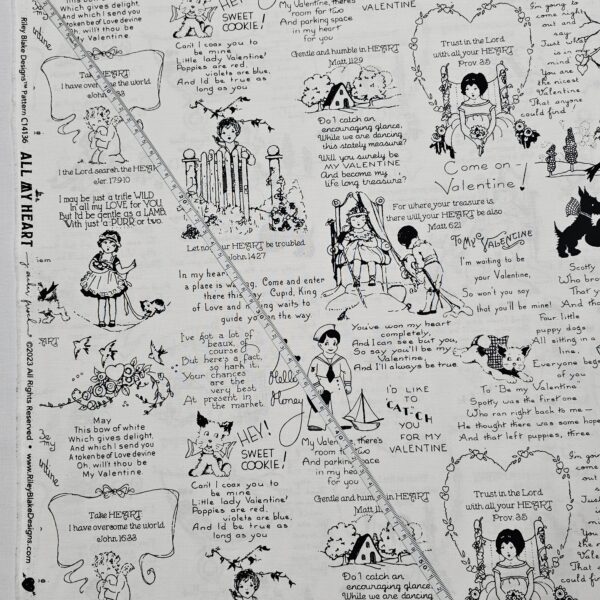 Which gives delight,
And which I send you
A token be of Love devine
Oh, will't thou be
My Valentine.
Take HEART
I have overcome the world
I the Lord search the HEART
eJer. 17:9-10
I may be just a trifle WILD
In all my LOVE for YOU,
But I'd be gentle as a LAMB,
With just a PURR or two.
May
This bow of white
Which gives delight,
And which I send you
A token be of Love devine
Oh, will't thou be
My Valentine.
Take HEART
I have overcome the world
eJohn. 16:33
HEY!
SWEET
COOKIE!
Can't I coax you to
be mine
Little lady Valentine?
Poppies are red,
violets are blue,
And I'd be true as
long as you
Let not your HEART be troubled
John 14:27
In my heart
a place is
Come and enter
there this
Cupid, King
of Love and
waits to
guide you on the way
I've got a lot of
beaux, of
course
But here's a fact,
so hark it,
Your chances
are the
very best
At present in
the market.
Hello
Honey
HEY!
SWEET
COOKIE!
Can't I coax you to
be mine
Little lady Valentine?
Poppies are red,
violets are blue,
And I'd be true as
long as you
My Valentine, there's
room for two
And parking space
in my heart
for you
VALENTINE
Gentle and humble in HEART
Matt 11:29
Do I catch an
encouraging glance,
While we are dancing
this stately measure?
Will you surely be
MY VALENTINE
And become my
life long treasure?
For where your treasure is
there will your HEART be also
Matt 6:21
To My VALENTINE
I'm waiting to be
your Valentine,
So won't you say
that you'll be mine!
You've won my heart
completely,
And I can see but you,
So say you'll be my
Valentine
And I'll always be true.
I'D LIKE
TO
CATCH
YOU
FOR MY
VALENTINE
My Valentine, there's
room
And parking space
in my heart
for you
Gentle and humble in HEART
Matt 11:
Do I catch an
encouraging glance,
While we are dancing
Trust in the Lord
with all your HEART
Prov. 3:5
Come on-
Valentine!
I'm going to
come
and
say
Just
is in
mind
You are
the nicest
Valentine
That anyone
could find
Scotty
Who
That
And tho
Four little
puppy dogs
All sitting in a
line.
Everyone
of you
To Be my Valentine
Spotty was the first one
Who ran right back to me—
He thought there was some hope
And that left puppies, three.
Trust in the Lord
with all your HEART
Prov. 3:5
Riley Blake Designs™ Pattern C14136
ALL MY HEART
©2023 All Rights Reserved
www.RileyBlakeDesigns.com